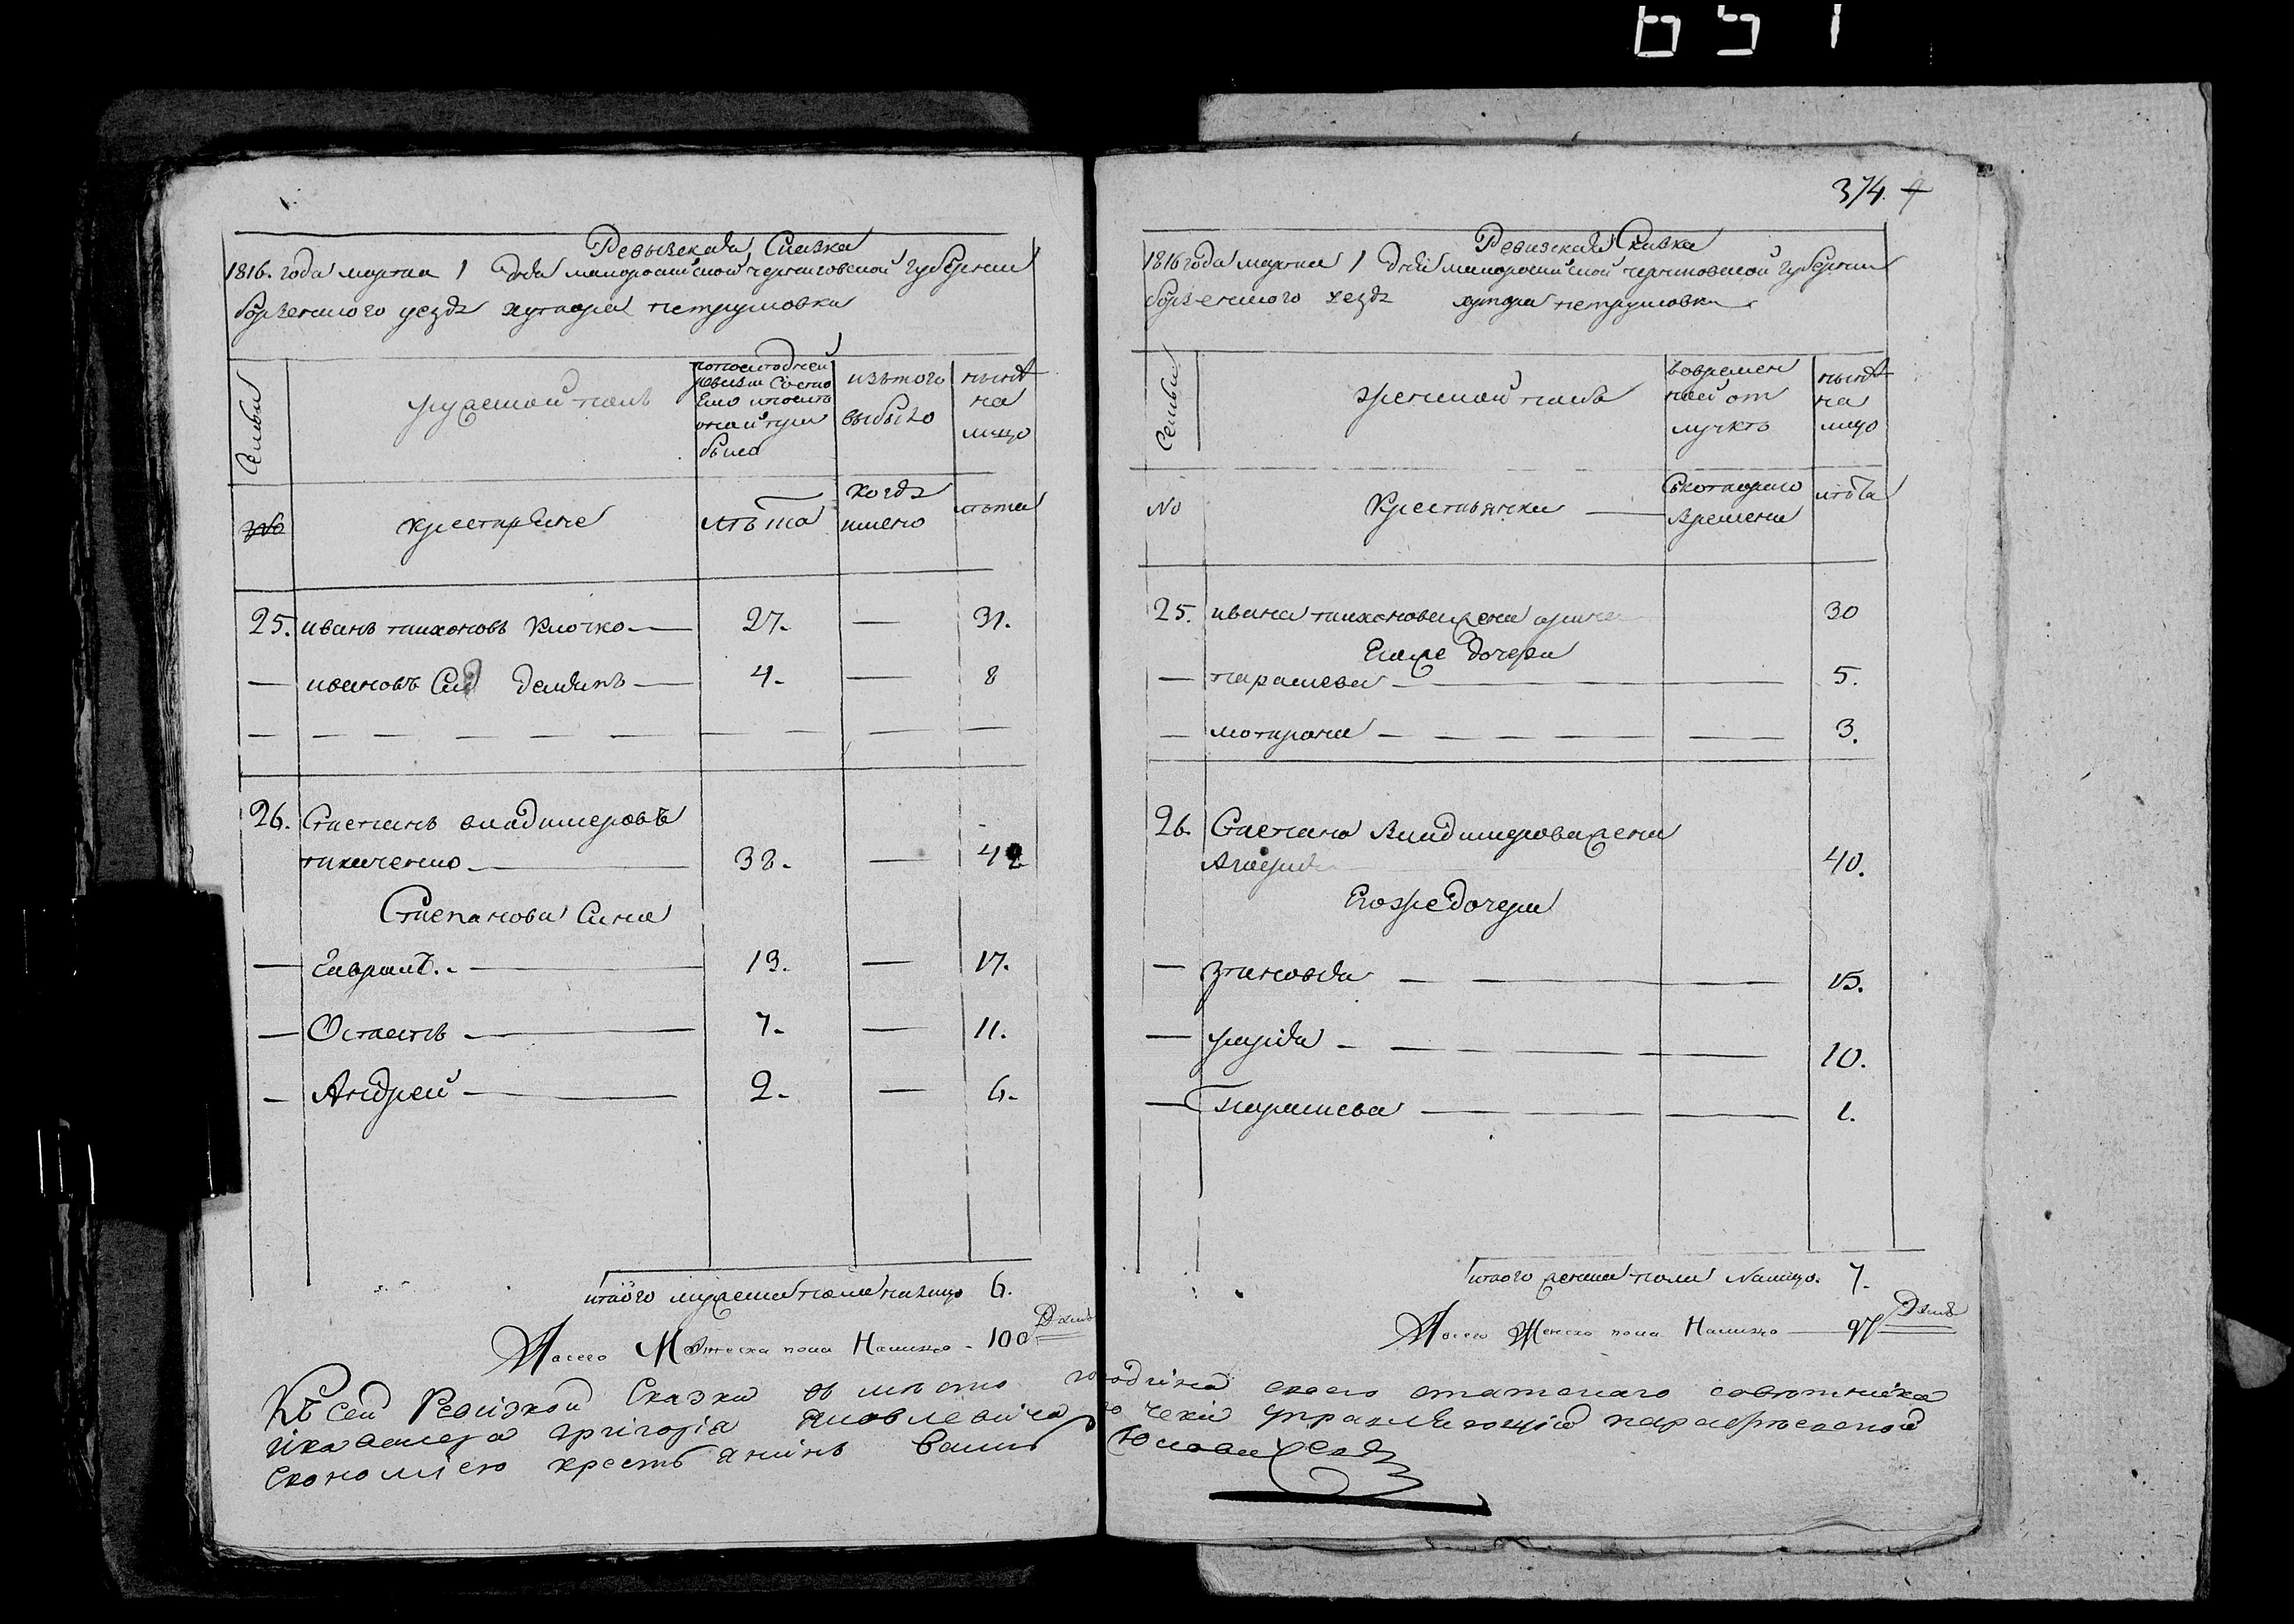 651
Ревызская Сказка
1816. года марта 1 дня малоросийской черниговской губернии
борзенского уезда хутора петрушовки
Семьи
мужеской полъ
попоследней
ревизии Состо
яло
была
изътого
выбыло
ныне
на
лицо
№
крестьяне
лѣта
когда
имено
лѣта
25. иванъ тихоновъ Клочко — 27. — 31.
— ивановъ Синъ демянъ — 4. — 8
26. Степанъ владимеровъ
ткаченко — 38. — 42
Степанови Сини
— Гаврило. — 13. — 17.
— Остапъ — 7. — 11.
— Андрей — 2. — 6.
итого мужеска пола налицо 6.
Авсего Мужеска пола Налицо - 100 Душъ
374.
Ревизская Сказка
1816 года марта 1 дня малоросийской черниговской губернии
борзенского уезда хутора петрушовки
Семьи
женской полъ
вовремен
ной от
лучкѣ
ныне
на
лицо
№
Крестьянки
Скоторого
времени
лѣта
25. ивана тихонова жена арина 30
Егоже дочери
— парасковя — 5.
— мотрона — 3.
26. Степана Владимирова жена
40.
Егожедочери
— зиновия — 15.
— марія — 10.
— парасковя — 1.
итого женска пола Налицо. 7.
Авсего Женска пола Налицо — 97 Душъ
Къ сей Ревізкой Сказки въ место господіна своего статскаго советніка
ікавалера григорія яковлевіча управляющій
економіею крестьянинъ